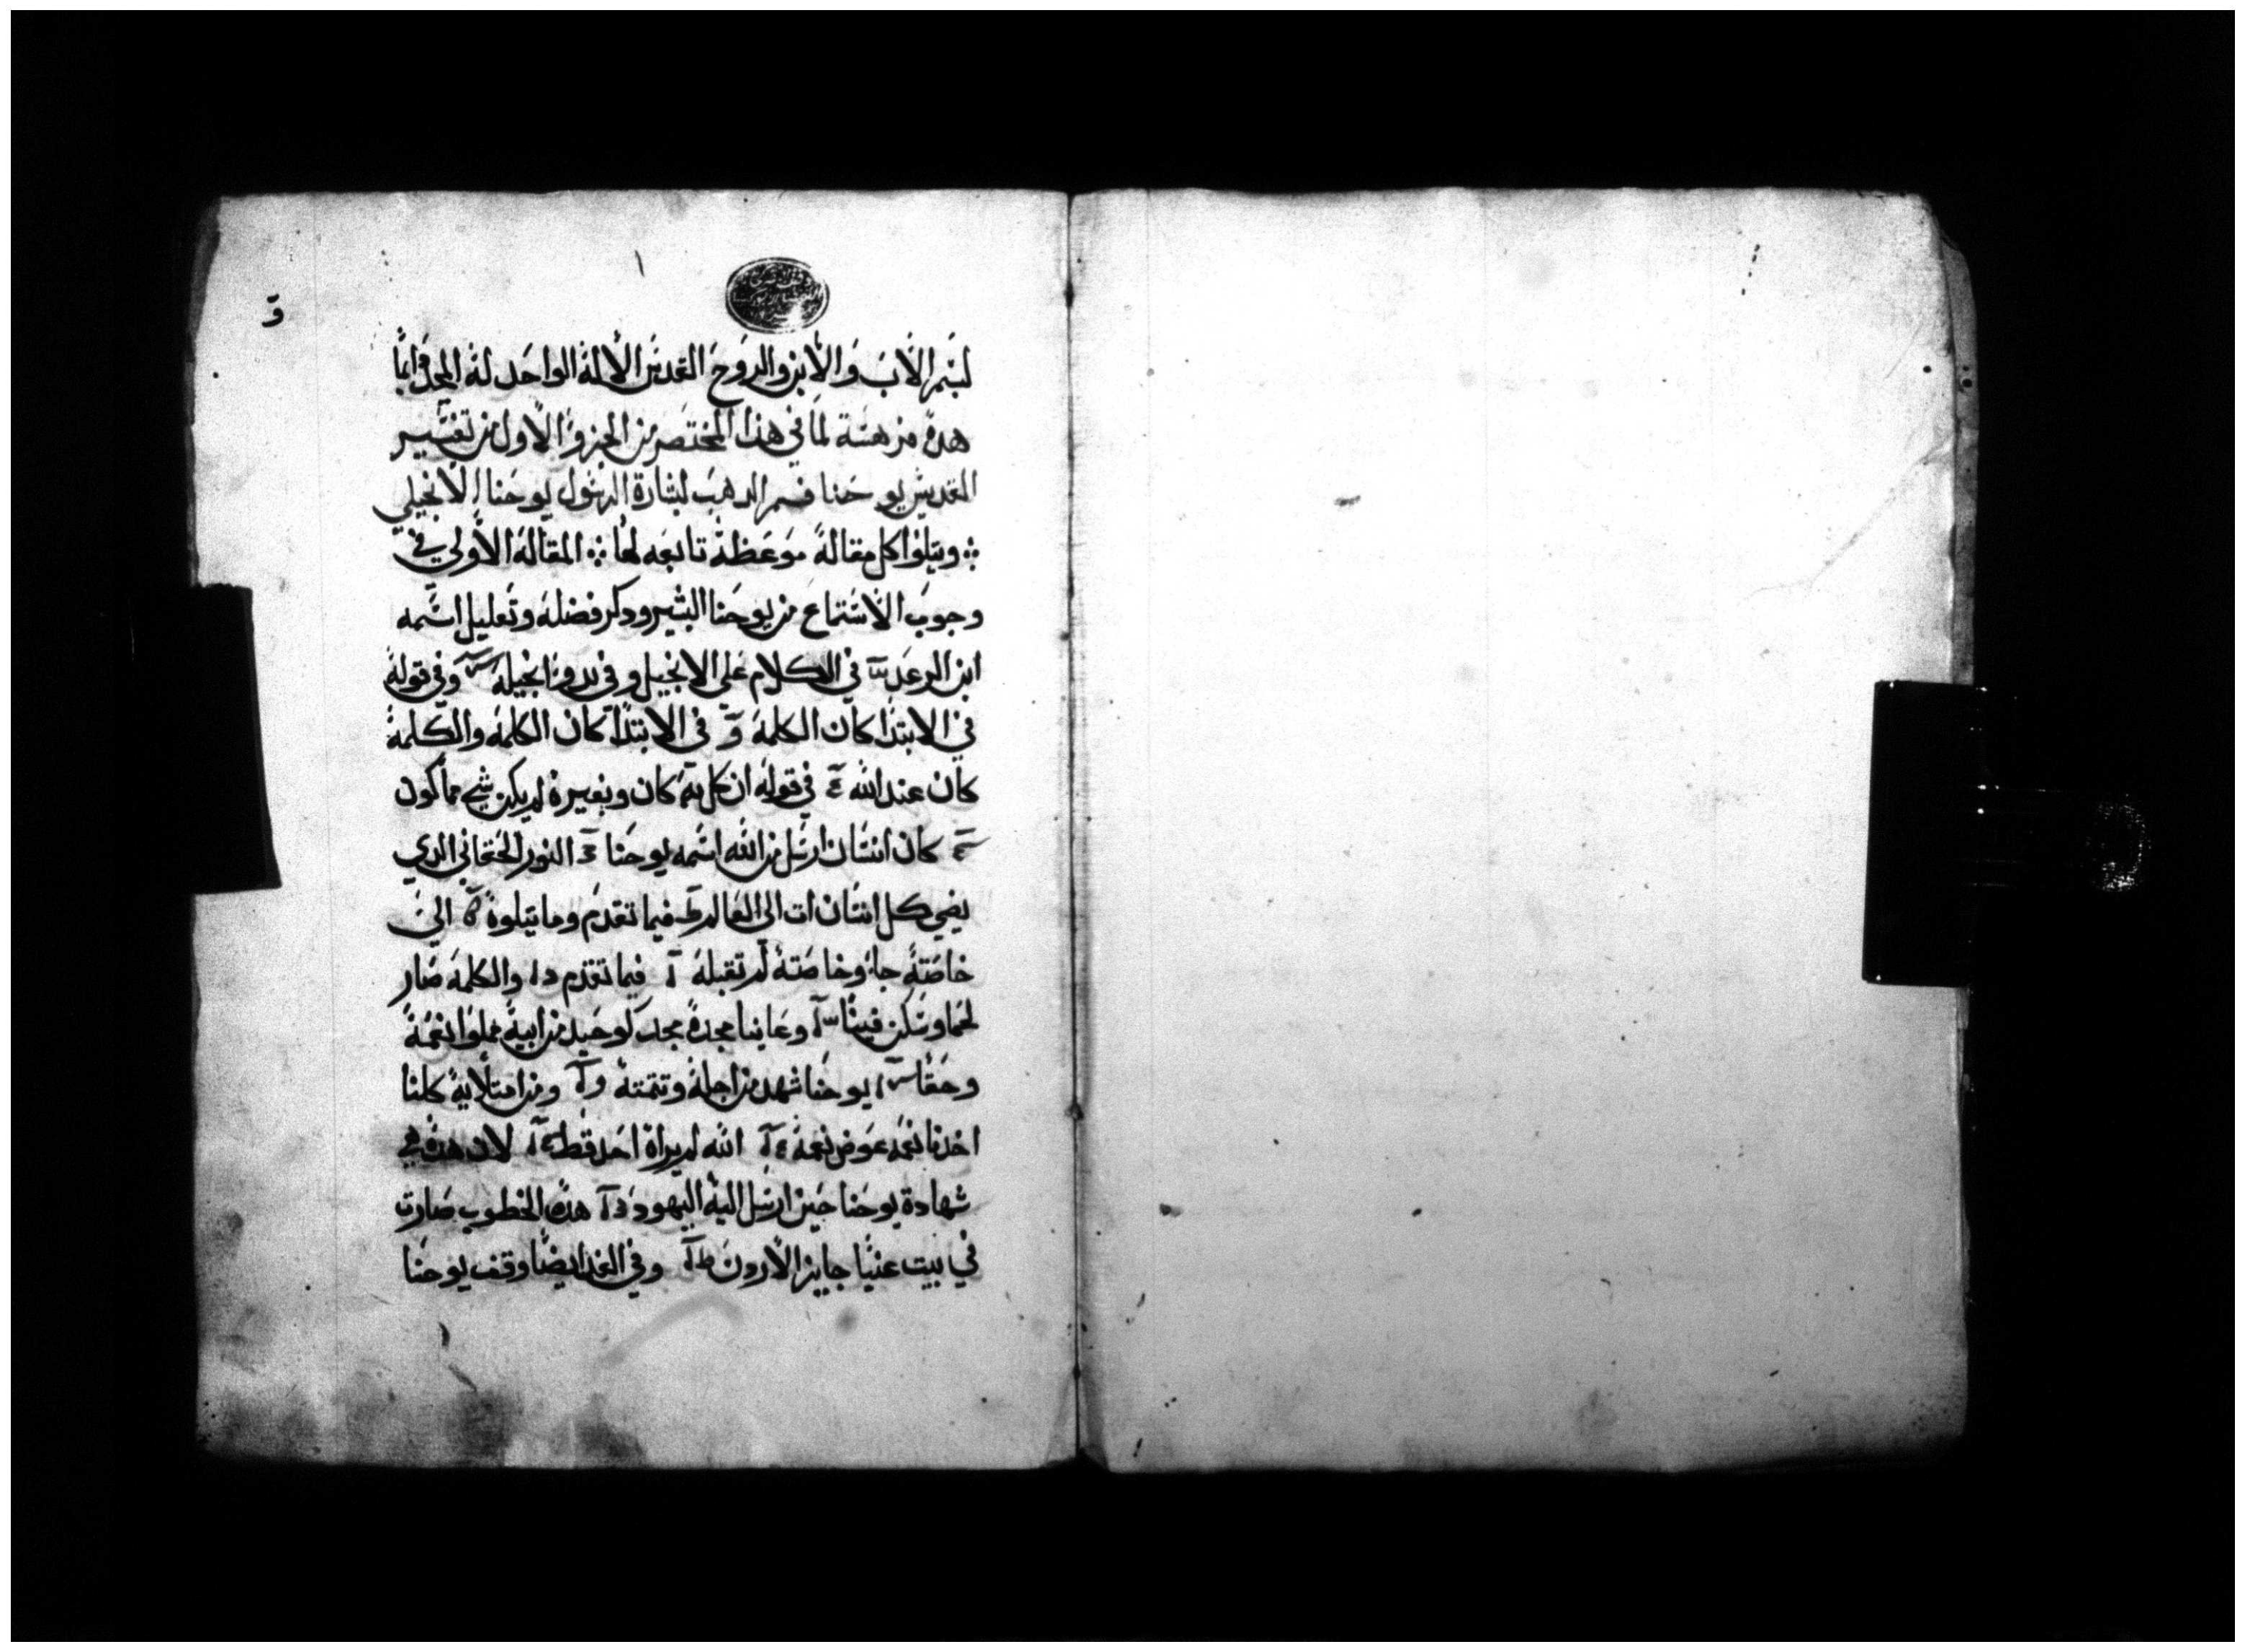 و
بسم الاب والابن والروح القدس الاله الواحد له المجد دايما
هده فرهسة لما في هذا المختصر من الجزو الاول من تفسير
القديس يوحنا فم الدهب لبشارة الرسول يوحنا الانجيلي
ويتلوا كل مقالة موعظة تابعه لها المقالة الاولى في
وجوب الاستماع من يوحنا البشير ودكر فضله وتعليل اسمه
ابن الرعد في الكلام علي الانجيل وفي بدو انجيله وفي قوله
في الابتدا كان الكلمة و في الابتدا كان الكلمة والكلمة
كان عند الله في قوله ان كل به كان وبغيره لم يكن شي مما كون
كان انسان ارسل من الله اسمه يوحنا النور الحقاني الدي
يضي كل انسان ات الى العالم فيما تقدم وما يتلوه الي
خاصته جا وخاصته لم تقبله فيما تقدم والكلمة صار
لحما وسكن فينا وعاينا مجده مجد كوحيد من ابيه مملوا نعمة
وحقا يوحنا شهد من اجله وتتمته ومن امتلايه كلنا
اخدنا نعمه عوض نعمة الله لم يراه احد قط لان هده هي
شهادة يوحنا حين ارسل اليه اليهود هده الخطوب صارت
في بيت عنيا جايز الاردن وفي الغد ايضا وقف يوحنا